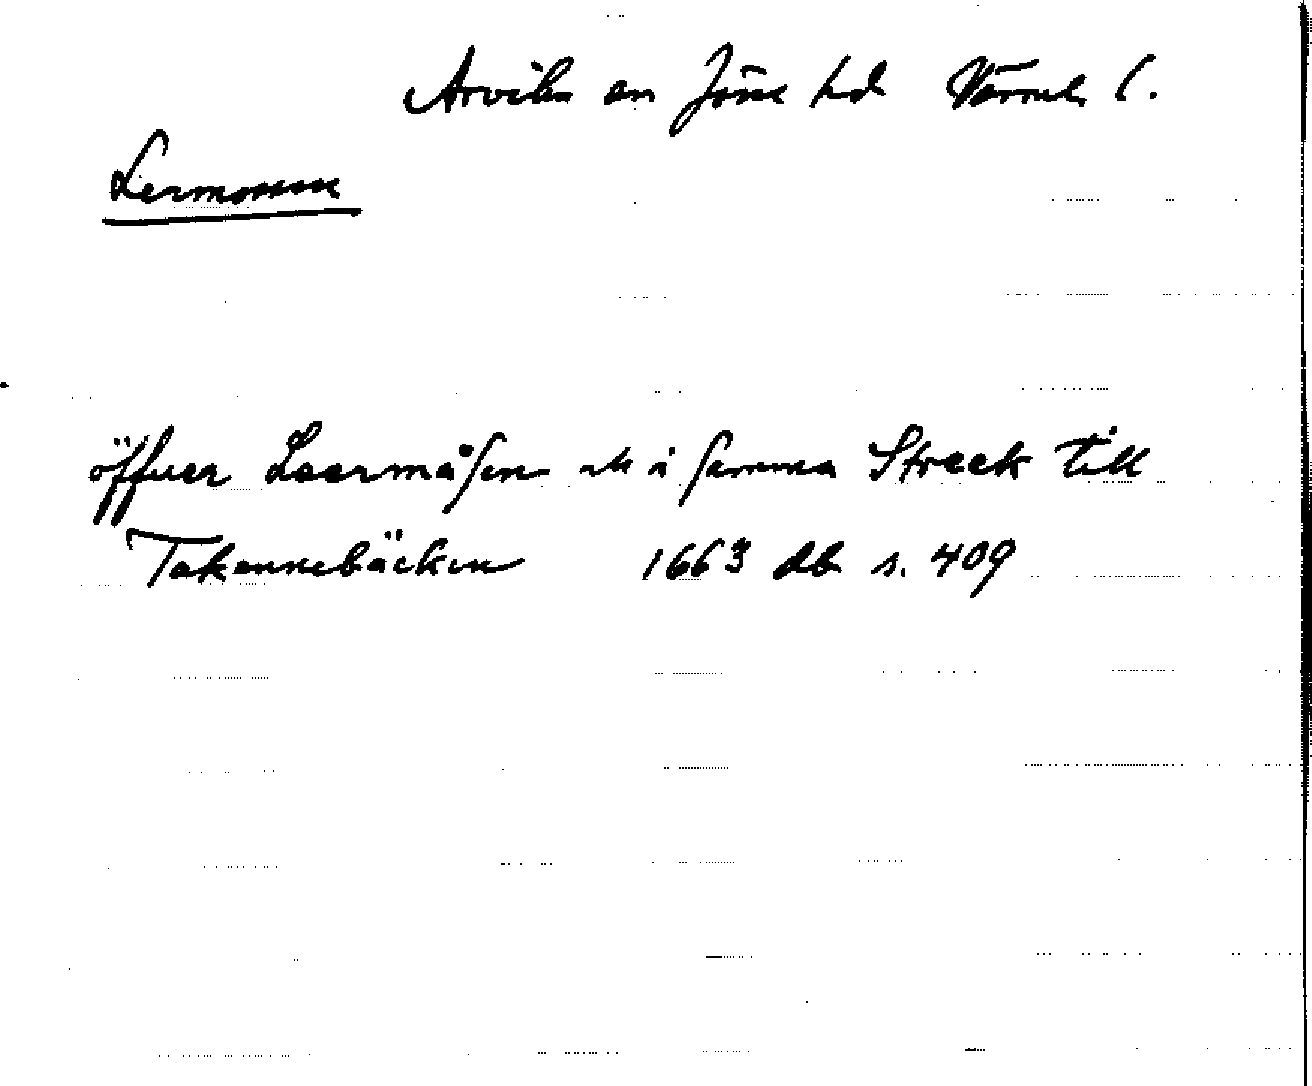 Arvika sn Jösse hd Värml l.
Lermossen
öffuer Leermåsen och i samma Streck till
Takennebäcken 1663 db s. 409